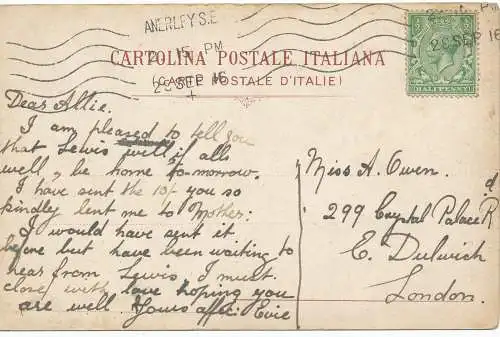 ANERLEY S.E
2 15 PM
28 SEP 16
28 SEP 16
HALFPENNY
CARTOLINA POSTALE ITALIANA
(CARTE POSTALE D'ITALIE)
Dear Allie.
I am pleased to tell you
that Lewis will, if all's
well, be home to-morrow.
I have sent the 10/- you so
kindly lent me to Mother:
I would have sent it
before but have been waiting to
hear from Lewis. I must
close with love hoping you
are well Yours affec: Evie
Miss A. Owen.
299 Crystal Palace Rd
E. Dulwich
London.